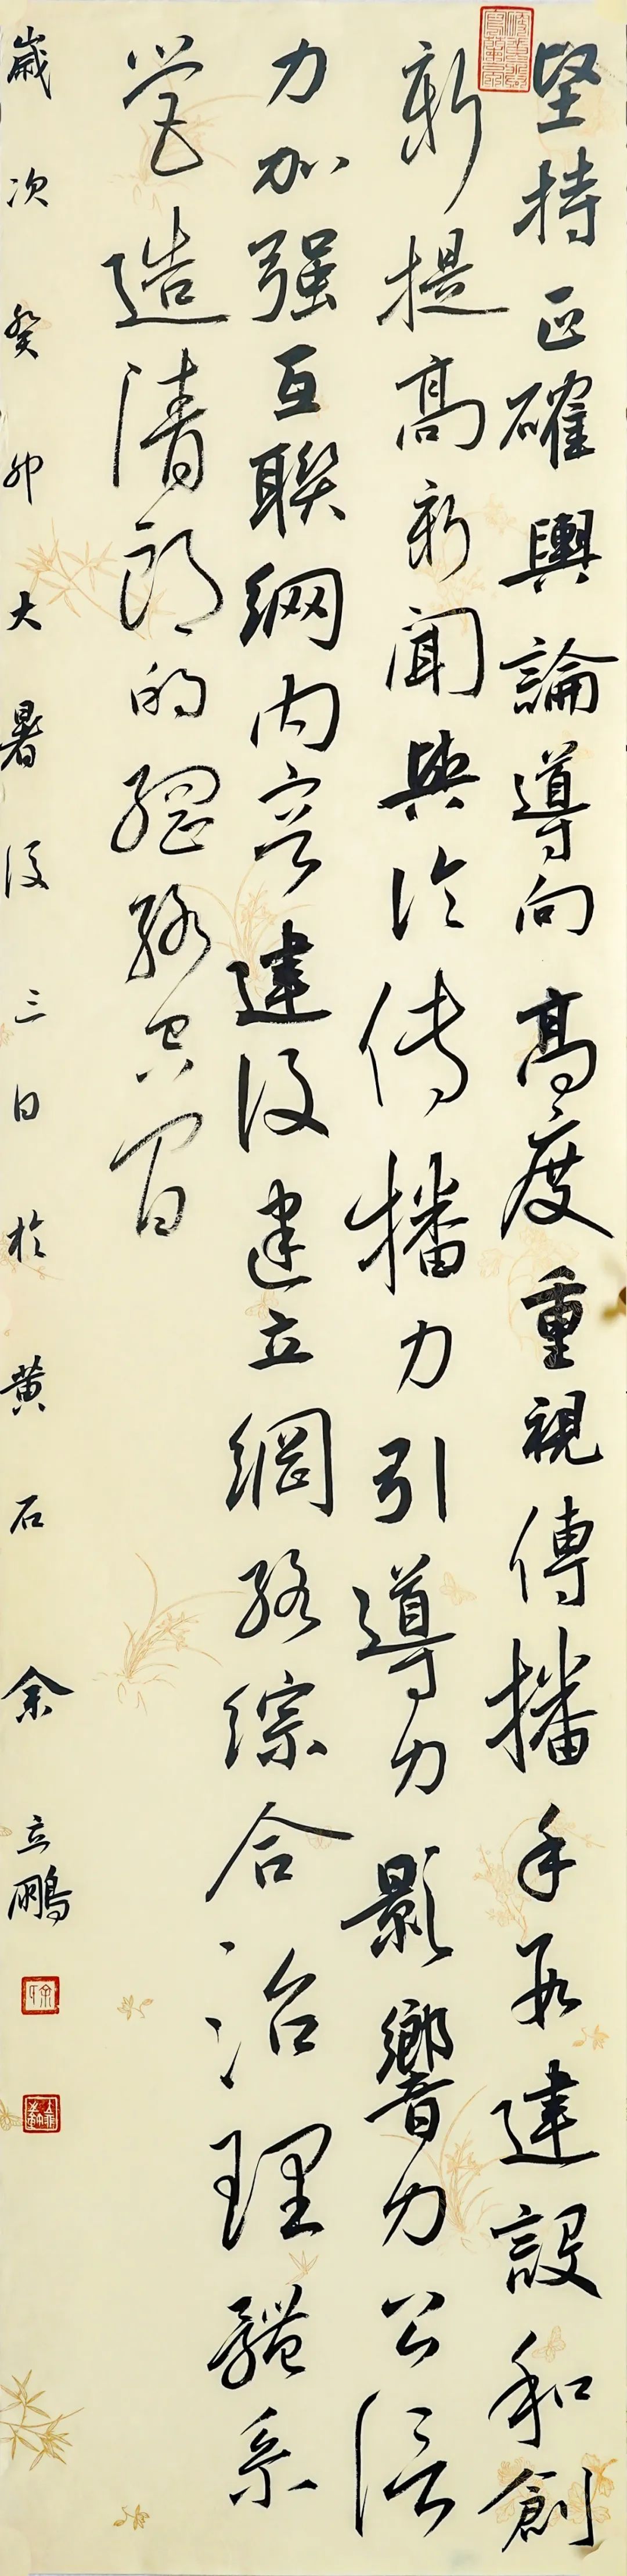 堅持正確輿論導向高度重視傳播手段建設和創
新提高新聞輿论傳播力引導力影響力公信
力加强互聯網内容建设建立網络綜合治理體系
营造清朗的網络空间
歲次癸卯大暑後三日於黄石余立鵬